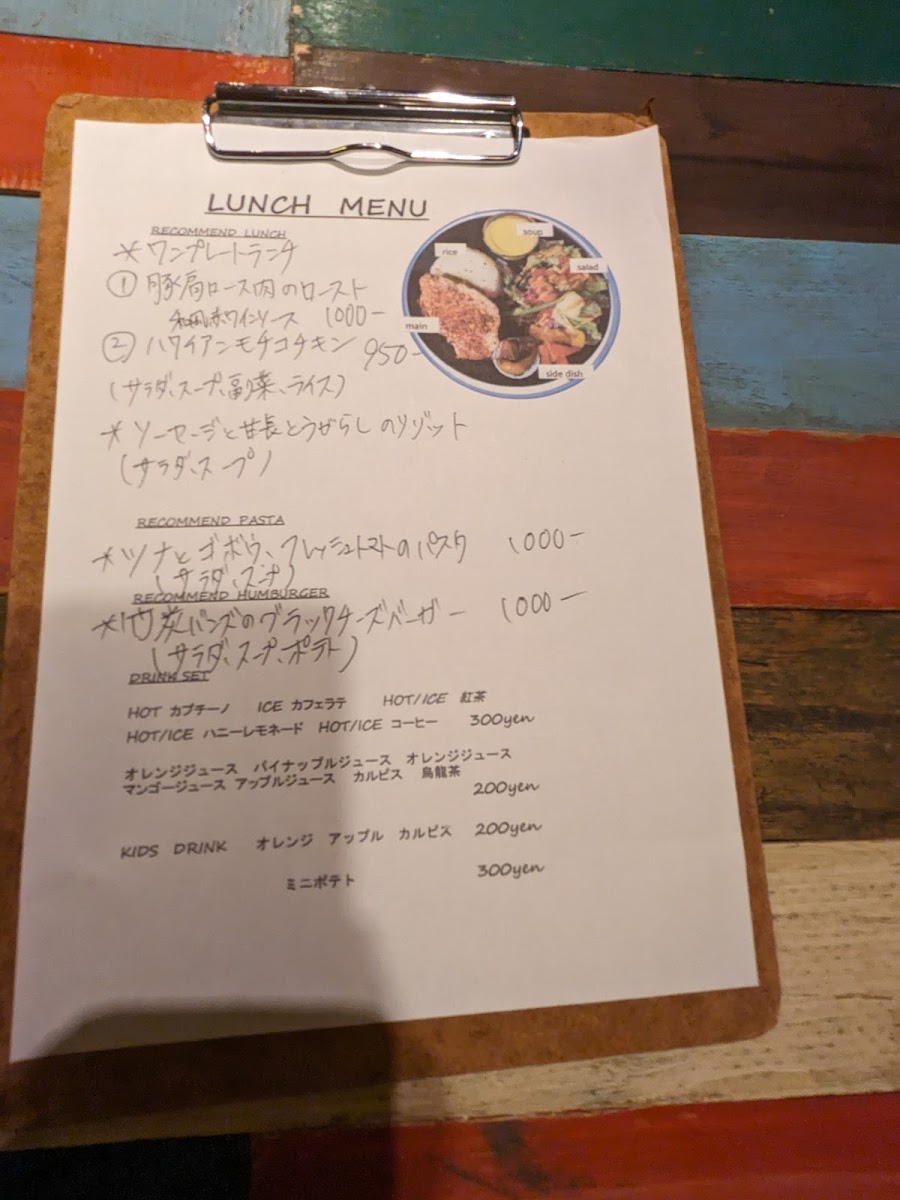 LUNCH MENU
RECOMMEND LUNCH
＊ワンプレートランチ
① 豚肩ロース肉のロースト
和風赤ワインソース 1000-
② ハワイアンモチコチキン 950-
(サラダ、スープ、副菜、ライス)
＊ソーセージと甘長とうがらしのリゾット
(サラダ、スープ)
soup
rice
salad
main
side dish
RECOMMEND PASTA
＊ツナとゴボウ、フレッシュトマトのパスタ 1000-
(サラダ、スープ)
RECOMMEND HUMBURGER
＊竹炭バンズのブラックチーズバーガー 1000-
(サラダ、スープ、ポテト)
DRINK SET
HOT カプチーノ ICE カフェラテ HOT/ICE 紅茶
HOT/ICE ハニーレモネード HOT/ICE コーヒー 300yen
オレンジジュース パイナップルジュース オレンジジュース
マンゴージュース アップルジュース カルピス 烏龍茶
200yen
KIDS DRINK オレンジ アップル カルピス 200yen
ミニポテト 300yen